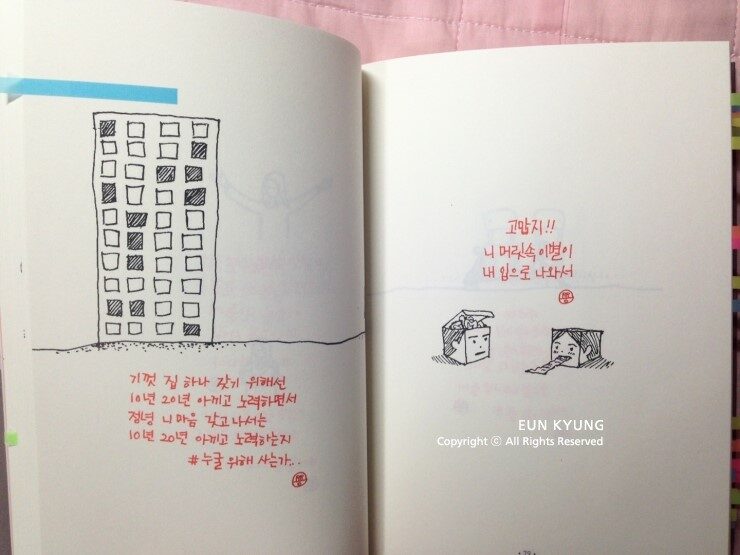 기껏 집 하나 갖기 위해선
10년 20년 아끼고 노력하면서
정녕 니 마음 갖고 나서는
10년 20년 아끼고 노력하는지
#누굴 위해 사는가...
고맙지!!
니 머릿속 이별이
내 입으로 나와서
EUN KYUNG
Copyright ⓒ All Rights Reserved
79